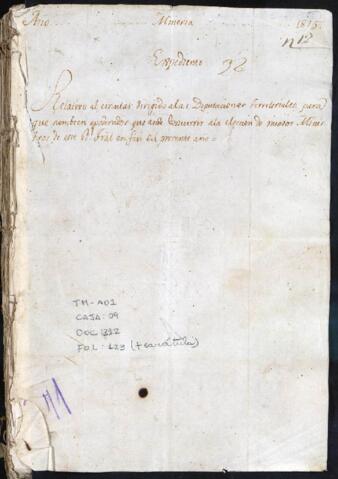 Año Mineria 1815
n 12
Expediente 92
Relativo al circular dirigido a las Diputaciones territoriales para
que nombren apoderados que de concurrir a la elección de nuevos
de este Rl. Tral. en fin del presente año =
TM-AD1
CAJA: 09
DOC: 322
FOL: 123 (+ carátula)